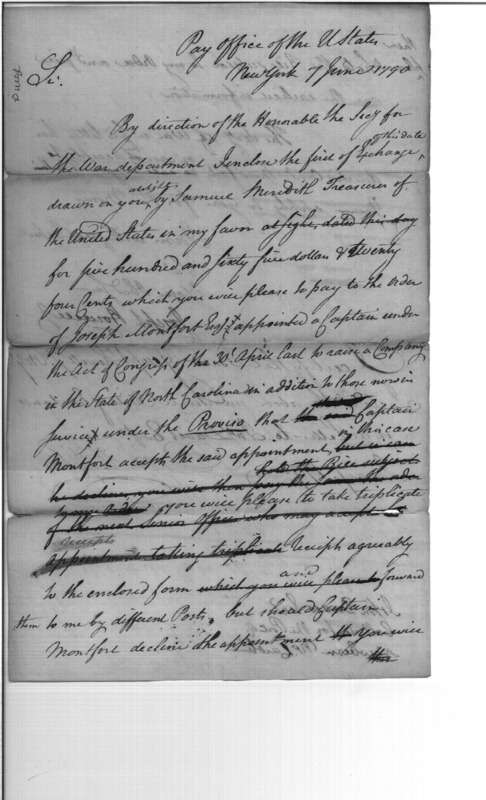 Pay office of the U States
New York 7 June 1790
Sir.
By direction of the Honorable the Secy for
this date
the War department I enclose the first of Exchange,
at sight
drawn on you, by Samuel Meredith Treasurer of
the United States in my favor at sight, dated this day
for five hundred and sixty five dollars & twenty
four Cents which you will please to pay to the order
of Joseph Montfort Esqr appointed a Captain under
the Act of Congress of the 30th April last to raise a Company
in the State of North Carolina in addition to those now in
Service under the Proviso that the said Captain
in this case
Montfort accepts the said appointment, but in case
hold the Bill subject
he decline, you will then pay the same to the
my order & you will please to take triplicate
of the next Senior officer who may accept
receipts
appointment taking triplicate receipts agreably
and
to the enclosed form which you will please to forward
them to me by different Posts, but should Captain
Montfort decline the appointment you will